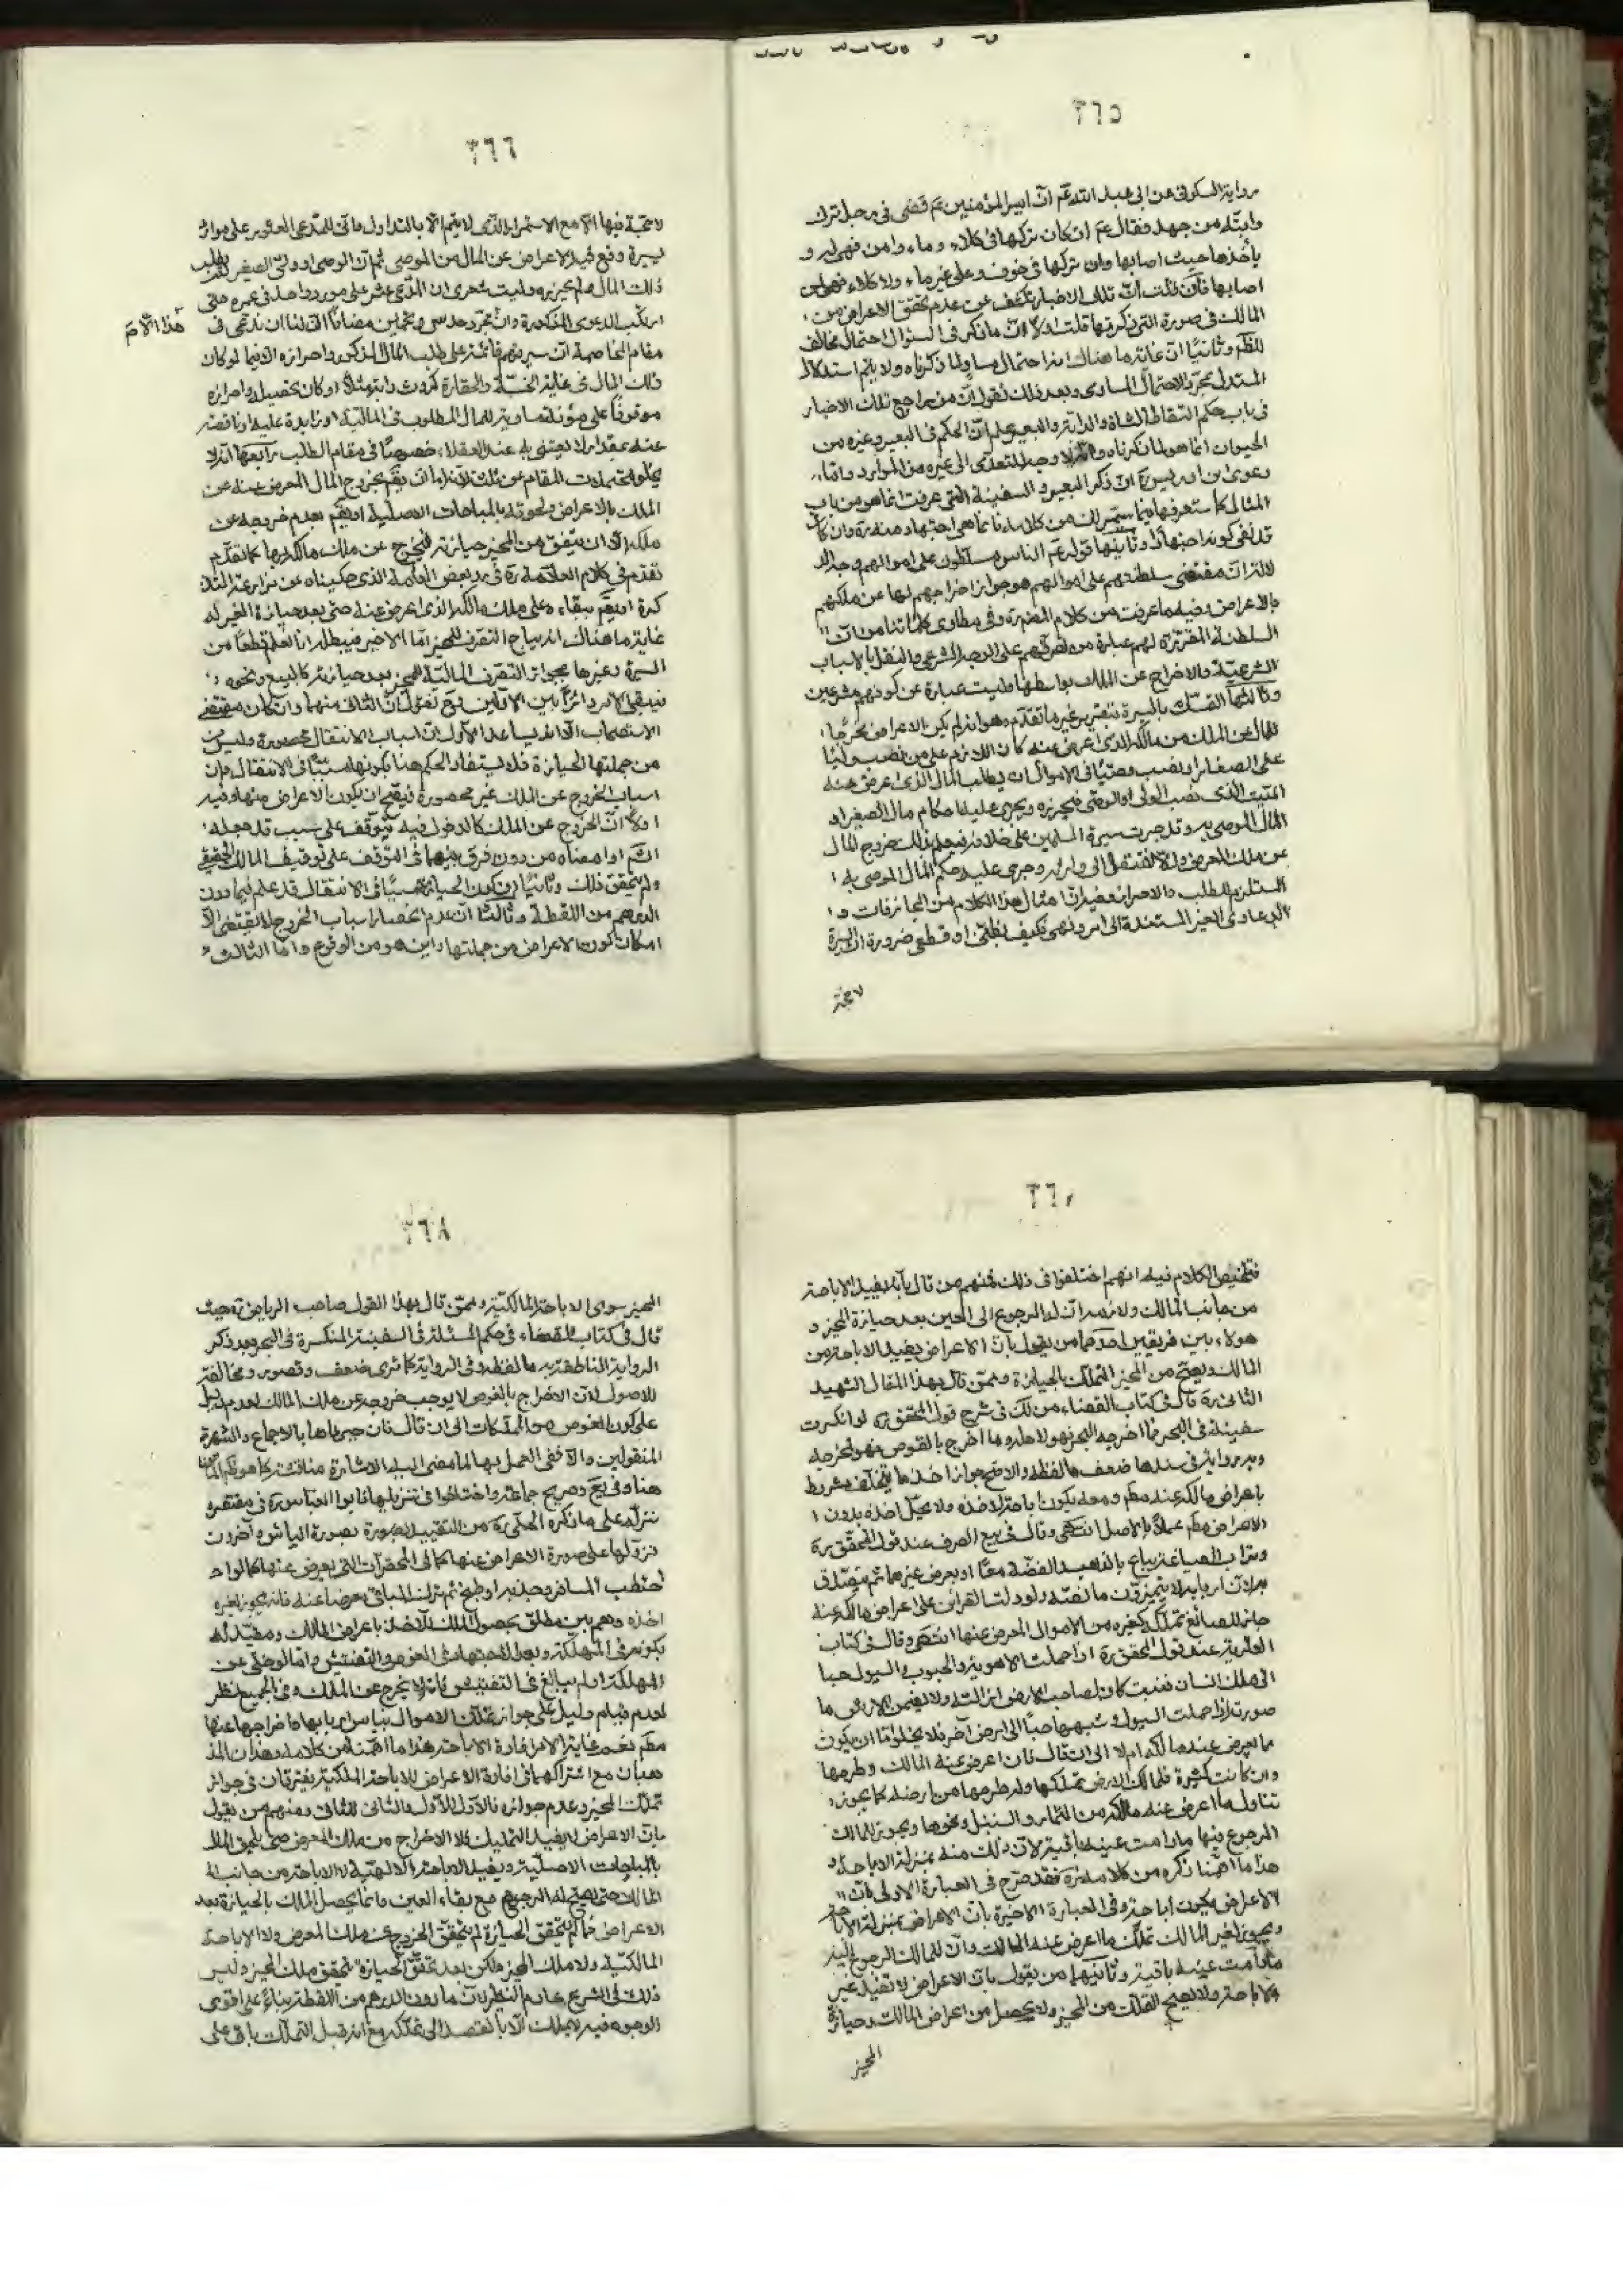 ٣٦٥
رواية السكونى عن ابى عبد الله عم انّ امير المؤمنين عم قضى فى رجل ترك
دابته من جهد فقال عم ان كان تركها فى كلاء و ماء و امن فهى له و
يأخذها حيث اصابها وان تركها فى خوف وعلى غير ماء ولا كلاء فهى لمن
اصابها فان قلت انّ تلك الاخبار تكشف عن عدم تحقق الاعراض من
المالك فى صورة التى ذكرتها قلت اولا انّ ما ذكر فى السؤال احتمال مخالف
للظم وثانيًا انّ غاية ما هناك انه احتمال مساو لما ذكرناه ولا يتم استدلال
المستدل بمجرد الاحتمال المساوى وبعد ذلك نقول انّ من راجع تلك الاخبار
فى باب حكم التقاط الشاة والدابة والبعير علم انّ الحكم فى البعير وغيره من
الحيوان انما هو لما ذكرناه وانه لا وجه للتعدّى الى غيره من الموارد وامّا
دعوى ابن ادريس ره انّ ذكر البعير و السفينة التى عرفت انما هو من باب
المثال كما ستعرفها فيما سيمر بك من كلامه فانما هى اجتهاد منه ره وان كان
قد نفى كونه اجتهادًا وثانيها قوله عم الناس مسلطون على اموالهم وجه الد
لالة انّ مقتضى سلطنتهم على اموالهم هو جواز اخراجهم لها عن ملكهم
بالاعراض وفيه ما عرفت من كلام المض ره وفى مطاوى كلماتنا من انّ
السلطنة المقررة لهم عبارة من تصرفهم على الوجه الشرعى والنقل بالاسباب
الشرعيّة والاخراج عن الملك بواسطها وليست عبارة عن كونهم مشرعين
وثالثها التمسّك بالسيرة بتقرير غير ما تقدم وهو انه لو لم يكن الاعراض مخرجًا
للمال عن الملك من مالكه الذى اعرض عنه كان اللازم على من نصب وليًا
على الصغار او نصب وصيًا فى الاموال ان يطلب المال الذى اعرض عنه
الميّت الذى نصب الولى او الوصى فيحرزه ويجرى عليه احكام مال الصغير او
المال الموصى به وقد جرت سيرة المسلمين على خلافه فيعلم بذلك خروج المال
عن ملك المعرض والا لانتقل الى وارثه وجرى عليه حكم المال الموصى به
المستلزم للطلب والاحراز وفيه انّ امثال هذا الكلام من المجازفات و
الدعاوى الغير المستندة الى امر وهمى فكيف بظنّى او قطعى ضرورة ان السيرة
لا حجيّة
٣٦٦
لا حجيّة فيها الّا مع الاستمرار الذى لا يتم الا بالتداول فانّى للمدّعى العثور على موارد
يسيرة وقع فيها الاعراض عن المال من الموصى ثم انّ الوصى او ولى الصغير لم يطلب
ذلك المال ولم يحرزه وليت شعرى ان الذى عثر على مورد واحد فى عمره حتى
ارتكب الدعوى المذكورة وانّ مجرّد حدسى وتخمين مضافًا الى لنا ان ندعى فى
هذا الامر
مقام المخاصمة انّ سيرتهم قائمة على طلب المال المذكور واحرازه الا فيما لو كان
ذلك المال فى غاية الخسّة والحقارة كروث دابته مثلًا او كان تحصيله واحرازه
موقوفًا على مؤنة مساوية للمال المطلوب فى المالية او زايدة عليه او ناقصة
عنه بمقدار لا يعتنى به عند العقلاء خصوصًا فى مقام الطلب رابعها انه لا
يخلو محتملات المقام عن ثلثة لانه اما ان يقم بخروج المال المعرض عنه عن
الملك بالاعراض ولحوقه بالمباحات الاصلية او يقم بعدم خروجه عن
ملكه الّا ان يتفق من المحيز حيازته فتخرج عن ملك مالكه بها كما تقدّم
تقدم فى كلام العلّامة ره فى رد بعض العامة الذى حكيناه عن مزارعة التذ
كرة او يقم ببقاءه على ملك مالكه الذى اعرض عنه حتى بعد حيازة الغير له
غاية ما هناك انه يباح التصرف للمحيز امّا الاخير فيبطله انا نعلم قطعًا من
السيرة وغيرها بجواز التصرف المالك للمحيز بعد حيازته كالبيع ونحوه
فيبقى الامر دائرًا بين الاوّلين وح نقول انّ الثانى منهما وان كان مقتضى
الاستصحاب الّا انه يساعد الاول انّ اسباب الانتقال محصورة وليس
من جملتها الحيازة فلا يستفاد الحكم هنا بكونها سببًا فى الانتقال وان
اسباب الخروج عن الملك غير محصورة فيصحّ ان يكون الاعراض منها وفيه
اولًا انّ الخروج عن الملك كالدخول فيه يتوقف على سبب قد جعله
الشم او امضاه من دون فرق بينهما فى التوقف على توقيف المالك الحقيقى
ولم يتحقق ذلك وثانيًا ان كون الحيازة سببًا فى الانتقال قد علم فيما دون
الدرهم من اللقطة وثالثًا انّ عدم انحصار اسباب الخروج لا يقتضى الّا
امكان كون الاعراض من جملتها واين هو من الوقوع وامّا الثالث
٣٦٧
فتلخيص الكلام فيه انهم اختلفوا فى ذلك فمنهم من قال بأنه يفيد الاباحة
من جانب المالك ولازمه انّ له الرجوع الى العين بعد حيازة المحيز و
هؤلاء بين فريقين احدهما من يقول بانّ الاعراض يفيد الاباحة من
المالك ويصحّ من المحيز التملّك بالحيازة وممّن قال بهذا المقال الشهيد
الثانى ره قال فى كتاب القضاء من لك فى شرح قول المحقق ره لو انكسرت
سفينة فى البحر فما اخرجه البحر فهو لاهله وما اخرج بالغوص فهو لمخرجه
وبه رواية فى سندها ضعف ما لفظه والاصح جواز اخذ ما يتخلف بشرط
اعراض مالكه عنه مطم ومعه يكون اباحة لاخذه ولا يحلّ اخذه بدون
الاعراض مطم عملًا بالاصل انتهى وقال فى بيع الصرف عند قول المحقق ره
وتراب الصياغة يباع بالذهب والفضّة معًا او بعرض غيرهما ثم يتصدّق
به لانّ اربابه لا يتميّزون ما لفظه ولو دلت القرائن على اعراض مالكه عنه
جاز للصائغ تملكه كغيره من الاموال المعرض عنها انتهى وقال فى كتاب
العارية عند قول المحقق ره اذا حملت الاهوية والحبوب والسيول حبا
الى ملك انسان فنبت كان لصاحب الارض ازالته ولا يضمن الارش ما
صورته اذا حملت السيول وشبهها حبًا الى ارض آخر فلا يخلو امّا ان يكون
ما يعرض عنه مالكه اولا الى ان قال فان اعرض عنه المالك وطرحها
وان كانت كثيرة فلمالك الارض تملّكها وله طرحها من ارضه كما يجوز
تناول ما اعرض عنه مالكه من الثمار والسنبل ونحوها ويجوز للمالك
الرجوع فيها مادامت عينها باقية لانّ ذلك منه بمنزلة الاباحة و
هذا ما اهمّنا ذكره من كلامه ره فقد صرّح فى العبارة الاولى بانّ
الاعراض يكون اباحة وفى العبارة الاخيرة بانّ الاعراض بمنزلة الاباحة
ويجوز لغير المالك تملّك ما اعرض عنه المالك وانّ للمالك الرجوع اليه
مادامت عينه باقية وثانيهما من يقول بانّ الاعراض لا تفيد غير
الاباحة ولا يصحّ التملّك من المحيز ولا يحصل من اعراض المالك وحيازة
المحيز
٣٦٨
المحيز سوى الاباحة المالكيّة وممّن قال بهذا القول صاحب الرياض ره حيث
قال فى كتاب القضاء فى حكم المسئلة فى السفينة المنكسرة فى البحر بعد ذكر
الرواية الناطقة به ما لفظه وفى الرواية كما ترى ضعف وقصور ومخالفة
للاصول لانّ الاخراج بالغوص لا يوجب خروجه عن ملك المالك لعدم دليل
على كون الغوص من المملكات الى ان قال فان جبرناها بالاجماع والشهرة
المنقولين والّا ففى العمل بها لما مضى اليه الاشارة مناقشة كما هو ظم الماتن
هنا وفى يع وصريح جماعة واختلفوا فى تنزيلها فابو العباس ره فى مقتصره
نزّله على ما ذكره الحلّى ره من التقييد لصورة بصورة الياس وآخرون
نزّلها على صورة الاعراض عنها كما فى المحقرات التى يعرض عنها كما لو ا
حتطب المسافر وجذبه او طبخ ثم ترك الباقى معرضا عنه فانه يجوز لغيره
اخذه وهم بين مطلق بحصول الملك للآخذ باعراض المالك ومقيّد له
بكونه فى المهلكة وبعد الاجتهاد فى الغوص والتفتيش وامّا لو خلى عن
المهلكة او لم يبالغ فى التفتيش فانه لا يخرج عن الملك وفى الجميع نظر
لعدم قيام دليل على جواز تملّك الاموال بياس اربابها واعراضها عنها
مطم نعم غاية الامر افادة الاباحة هذا ما اهمنا من كلامه وهذان المذ
هبان مع اشتراكهما فى افادة الاعراض للاباحة المالكية يفترقان فى جواز
تملّك المحيز وعدم جوازه فالاول للاوّل والثانى للثانى ومنهم من يقول
بانّ الاعراض لا يفيد التمليك ولا الاخراج من ملك المعرض حتى يلحق المال
بالمباحات الاصليّة ويفيد الاباحة الالهيّة لا الاباحة من جانب
المالك حتى يصحّ له الرجوع مع بقاء العين وانما يحصل الملك بالحيازة بعد
الاعراض فما لم يتحقق الحيازة لم يتحقق الخروج عن ملك المعرض ولا الاباحة
المالكيّة ولا ملك المحيز ولكن بعد تحقق الحيازة يتحقق ملك المحيز وليس
ذلك فى الشرع عادم النظير لانّ ما دون الدرهم من اللقطة بناءً على اقوى
الوجوه فيه لا يملك الّا بالقصد الى تملّكه مع انه قبل التملّك باق على